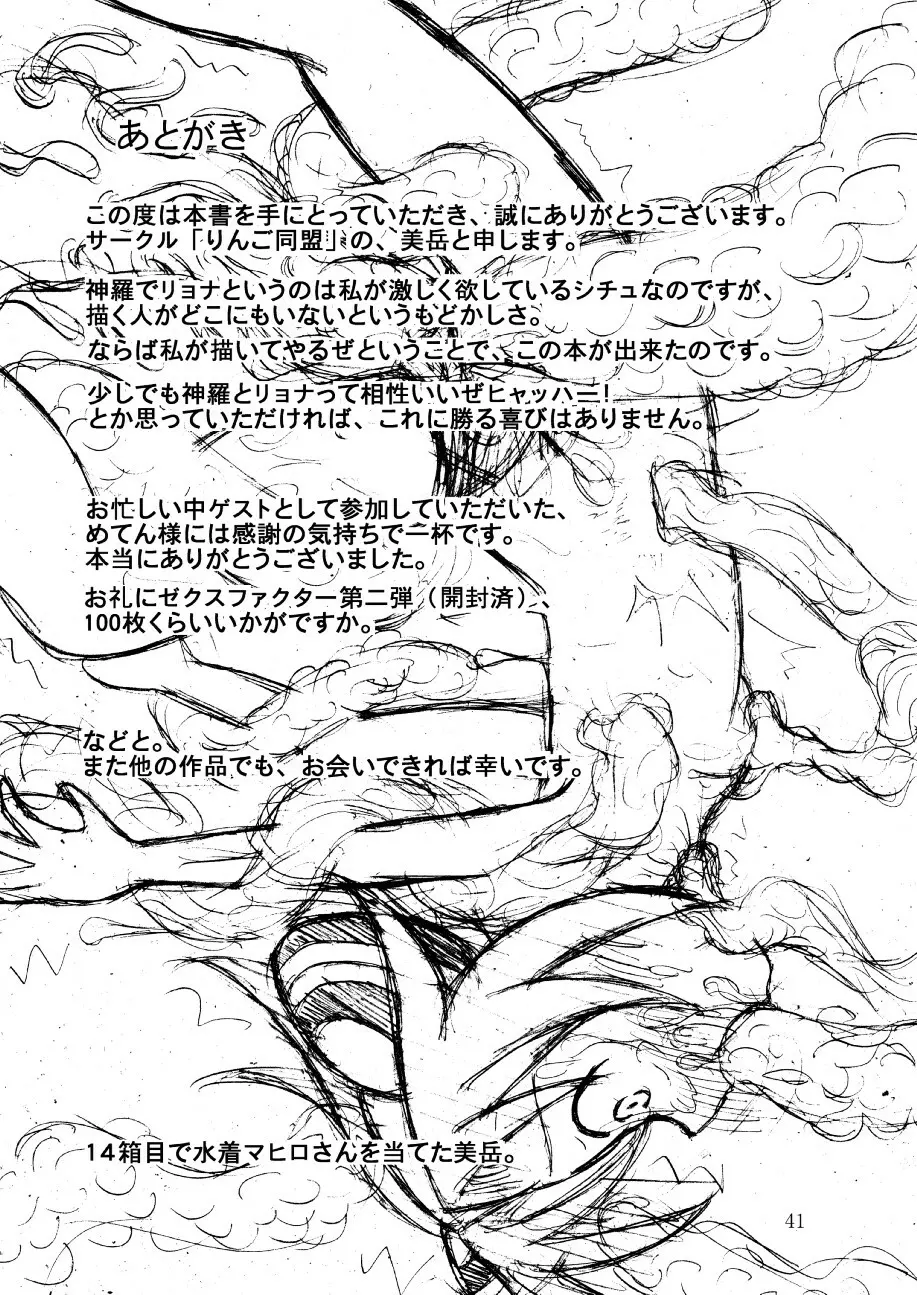 あとがき
この度は本書を手にとっていただき、誠にありがとうございます。
サークル「りんご同盟」の、美岳と申します。
神羅でリョナというのは私が激しく欲しているシチュなのですが、
描く人がどこにもいないというもどかしさ。
ならば私が描いてやるぜということで、この本が出来たのです。
少しでも神羅とリョナって相性いいぜヒャッハー！
とか思っていただければ、これに勝る喜びはありません。
お忙しい中ゲストとして参加していただいた、
めてん様には感謝の気持ちで一杯です。
本当にありがとうございました。
お礼にゼクスファクター第二弾（開封済）、
100枚くらいいかがですか。
などと。
また他の作品でも、お会いできれば幸いです。
14箱目で水着マヒロさんを当てた美岳。
41